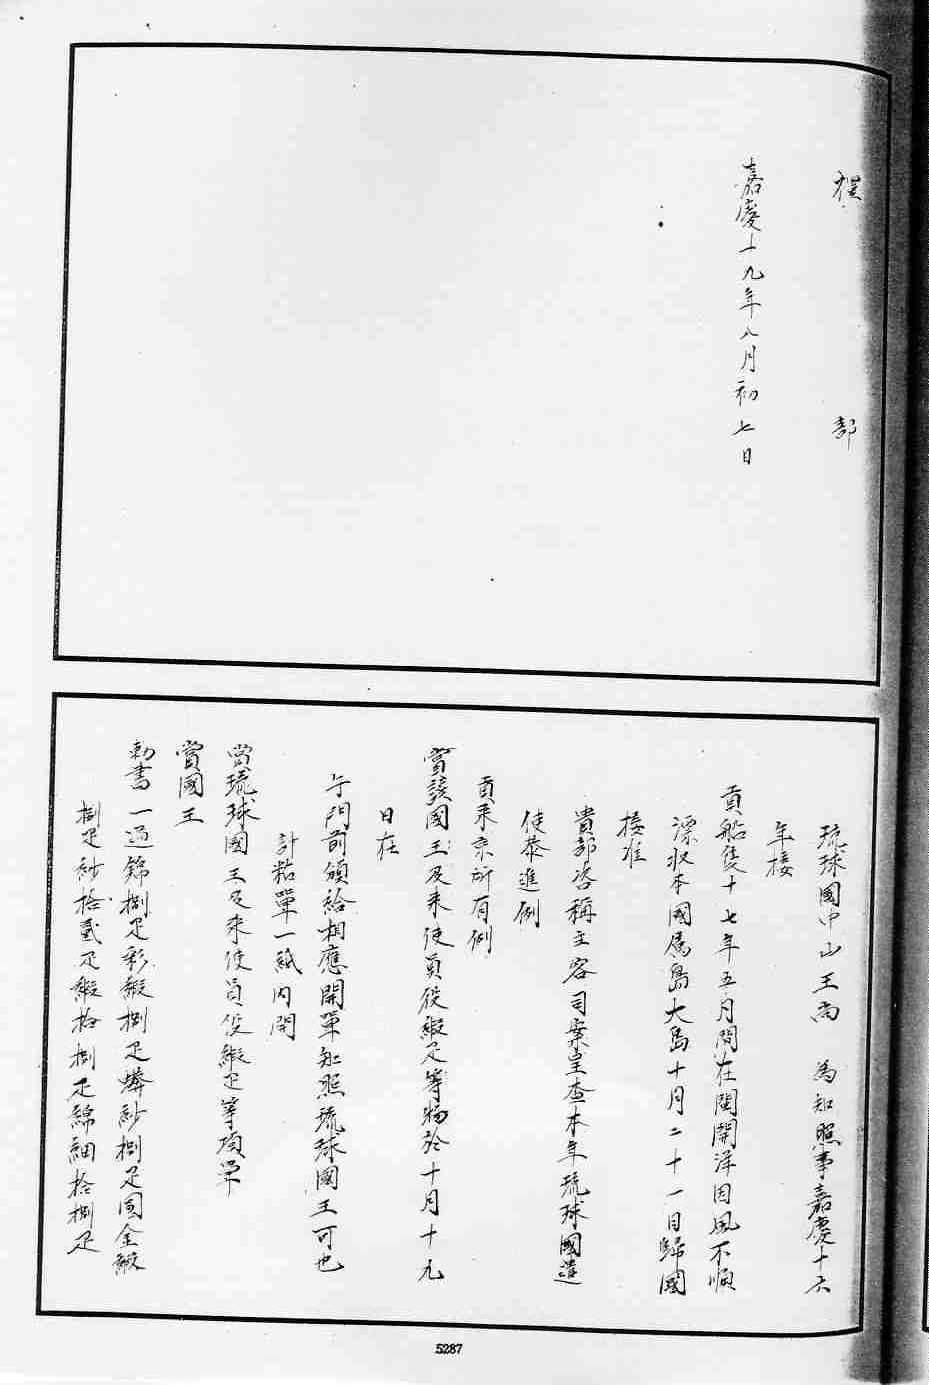 禮　部
嘉慶十九年八月初七日
琉球國中山王尚　為知照事嘉慶十六
年接
貢船隻十七年五月間在閩開洋因風不順
漂收本國属島大島十月二十一日歸國
接准
貴部咨稱主客司案呈查本年琉球國遣
使恭進例
貢來京所有例
賞該國王及来使員役緞疋等物於十月十九
日在
午門前頒給相應開單知照琉球國王可也
計粘單一紙內開
賞琉球國王及來使員役緞疋等項單
賞國王
勅書一道錦捌疋彩緞捌疋蟒紗捌疋圓金緞
捌疋紗拾貳疋緞拾捌疋綿紬拾捌疋
5287